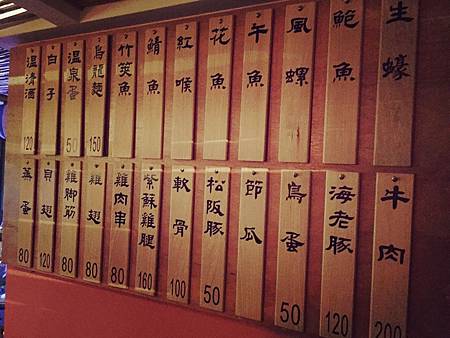 生蠔
鮑魚
風螺
午魚
花魚
紅喉
鯖魚
竹筴魚
烏龍麵 150
溫泉蛋 50
白子
溫清酒 120
牛肉 200
海老豚 120
鳥蛋 50
節瓜
松阪豚 50
軟骨 100
紫蘇雞腿 160
雞肉串 80
雞翅 80
雞腳筋 80
貝翅 120
蒸蛋 80